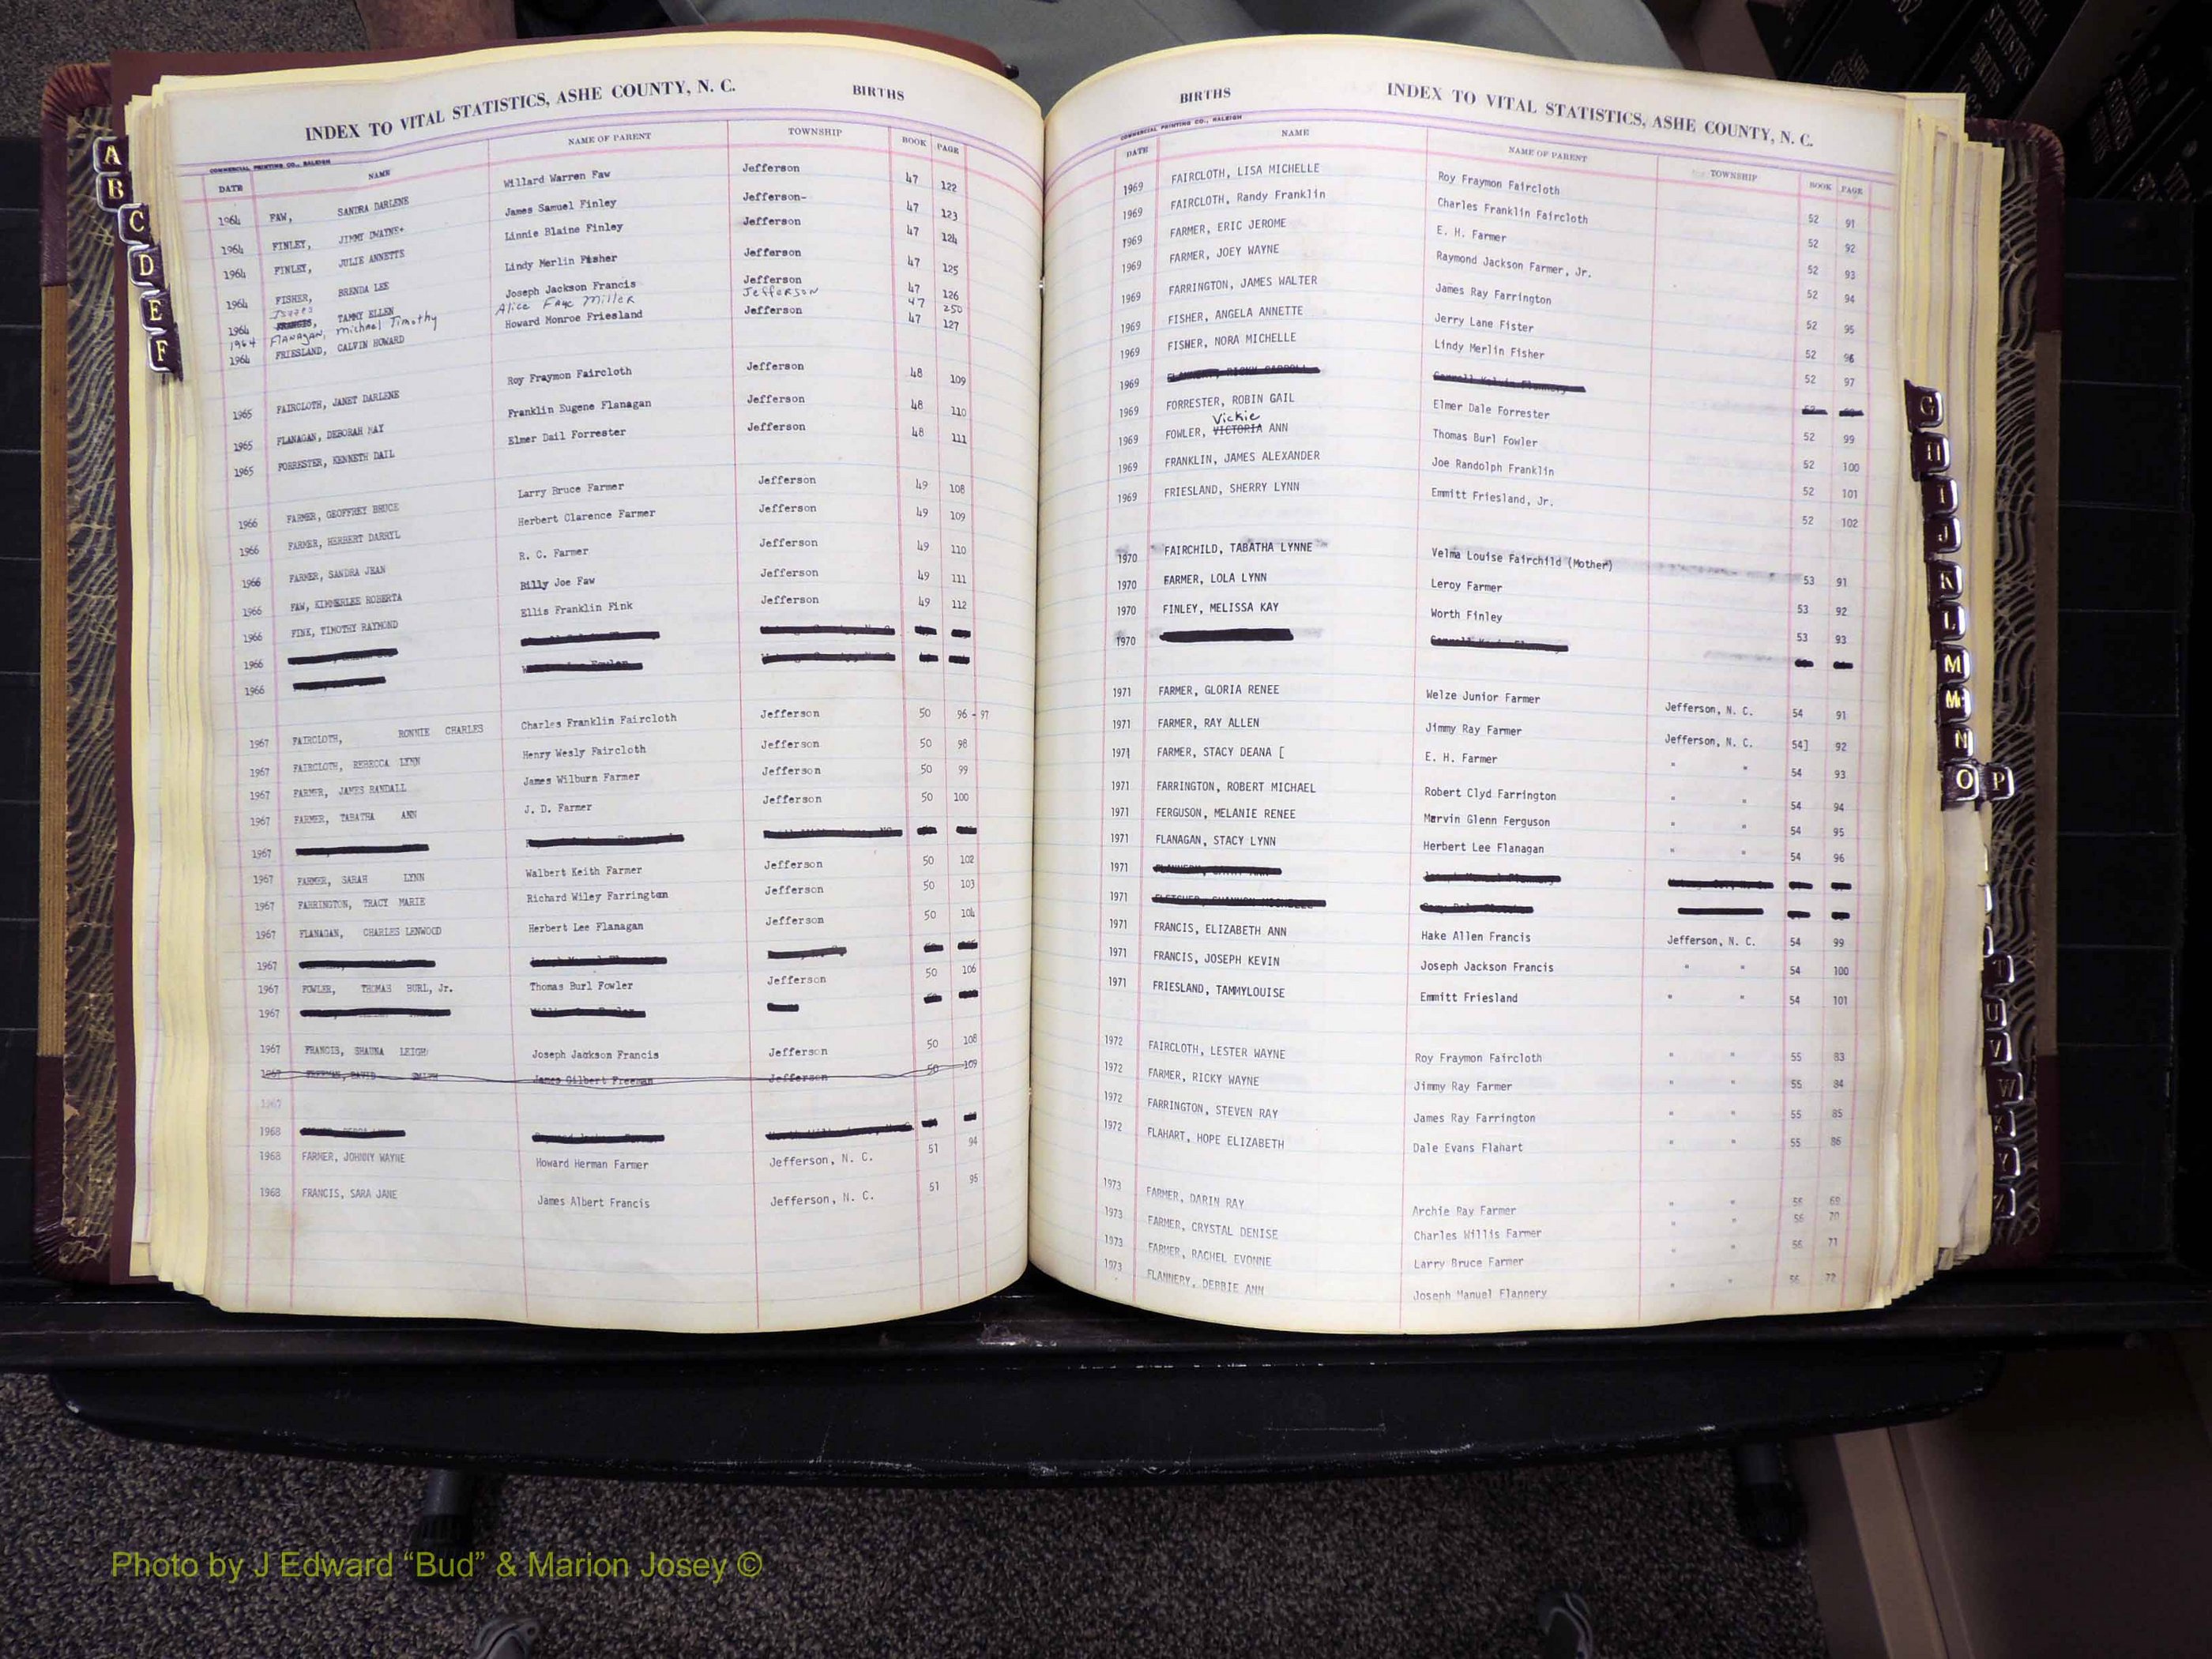 INDEX TO VITAL STATISTICS, ASHE COUNTY, N. C. BIRTHS
COMMERCIAL PRINTING CO., RALEIGH
DATE NAME NAME OF PARENT TOWNSHIP BOOK PAGE
1964 FAW, SANDRA DARLENE Willard Warren Faw Jefferson 47 122
1964 FINLEY, JIMMY DWAYNE James Samuel Finley Jefferson- 47 123
1964 FINLEY, JULIE ANNETTE Linnie Blaine Finley Jefferson 47 124
1964 FISHER, BRENDA LEE Lindy Merlin Fisher Jefferson 47 125
1964 FRANCIS, TAMMY ELLEN Joseph Jackson Francis Jefferson 47 126
1964 FLANAGAN, Michael Timothy Alice Faye Miller Jefferson 47 250
1964 FRIESLAND, CALVIN HOWARD Howard Monroe Friesland Jefferson 47 127
1965 FAIRCLOTH, JANET DARLENE Roy Fraymon Faircloth Jefferson 48 109
1965 FLANAGAN, DEBORAH MAY Franklin Eugene Flanagan Jefferson 48 110
1965 FORRESTER, KENNETH DAIL Elmer Dail Forrester Jefferson 48 111
1966 FARMER, GEOFFREY BRUCE Larry Bruce Farmer Jefferson 49 108
1966 FARMER, HERBERT DARRYL Herbert Clarence Farmer Jefferson 49 109
1966 FARMER, SANDRA JEAN R. C. Farmer Jefferson 49 110
1966 FAW, KIMMERLEE ROBERTA Billy Joe Faw Jefferson 49 111
1966 FINK, TIMOTHY RAYMOND Ellis Franklin Fink Jefferson 49 112
1966
1966
1967 FAIRCLOTH, RONNIE CHARLES Charles Franklin Faircloth Jefferson 50 96 - 97
1967 FAIRCLOTH, REBECCA LYNN Henry Wesly Faircloth Jefferson 50 98
1967 FARMER, JAMES RANDALL James Wilburn Farmer Jefferson 50 99
1967 FARMER, TABATHA ANN J. D. Farmer Jefferson 50 100
1967
1967 FARMER, SARAH LYNN Walbert Keith Farmer Jefferson 50 102
1967 FARRINGTON, TRACY MARIE Richard Wiley Farrington Jefferson 50 103
1967 FLANAGAN, CHARLES LENWOOD Herbert Lee Flanagan Jefferson 50 104
1967
1967 FOWLER, THOMAS BURL, Jr. Thomas Burl Fowler Jefferson 50 106
1967
1967 FRANCIS, SHAUNA LEIGH Joseph Jackson Francis Jefferson 50 108
1967 FREEMAN, DAVID James Gilbert Freeman Jefferson 50 109
1967
1968
1968 FARMER, JOHNNY WAYNE Howard Herman Farmer Jefferson, N. C. 51 94
1968 FRANCIS, SARA JANE James Albert Francis Jefferson, N. C. 51 95
BIRTHS INDEX TO VITAL STATISTICS, ASHE COUNTY, N. C.
COMMERCIAL PRINTING CO., RALEIGH
DATE NAME NAME OF PARENT TOWNSHIP BOOK PAGE
1969 FAIRCLOTH, LISA MICHELLE Roy Fraymon Faircloth 52 91
1969 FAIRCLOTH, Randy Franklin Charles Franklin Faircloth 52 92
1969 FARMER, ERIC JEROME E. H. Farmer 52 93
1969 FARMER, JOEY WAYNE Raymond Jackson Farmer, Jr. 52 94
1969 FARRINGTON, JAMES WALTER James Ray Farrington 52 95
1969 FISHER, ANGELA ANNETTE Jerry Lane Fister 52 96
1969 FISHER, NORA MICHELLE Lindy Merlin Fisher 52 97
1969
1969 FORRESTER, ROBIN GAIL Elmer Dale Forrester 52 99
Vickie
1969 FOWLER, VICTORIA ANN Thomas Burl Fowler 52 100
1969 FRANKLIN, JAMES ALEXANDER Joe Randolph Franklin 52 101
1969 FRIESLAND, SHERRY LYNN Emmitt Friesland, Jr. 52 102
1970 FAIRCHILD, TABATHA LYNNE Velma Louise Fairchild (Mother) 53 91
1970 FARMER, LOLA LYNN Leroy Farmer 53 92
1970 FINLEY, MELISSA KAY Worth Finley 53 93
1970
1971 FARMER, GLORIA RENEE Welze Junior Farmer Jefferson, N. C. 54 91
1971 FARMER, RAY ALLEN Jimmy Ray Farmer Jefferson, N. C. 54] 92
1971 FARMER, STACY DEANA [ E. H. Farmer " " 54 93
1971 FARRINGTON, ROBERT MICHAEL Robert Clyd Farrington " " 54 94
1971 FERGUSON, MELANIE RENEE Marvin Glenn Ferguson " " 54 95
1971 FLANAGAN, STACY LYNN Herbert Lee Flanagan " " 54 96
1971
1971
1971 FRANCIS, ELIZABETH ANN Hake Allen Francis Jefferson, N. C. 54 99
1971 FRANCIS, JOSEPH KEVIN Joseph Jackson Francis " " 54 100
1971 FRIESLAND, TAMMYLOUISE Emmitt Friesland " " 54 101
1972 FAIRCLOTH, LESTER WAYNE Roy Fraymon Faircloth " " 55 83
1972 FARMER, RICKY WAYNE Jimmy Ray Farmer " " 55 84
1972 FARRINGTON, STEVEN RAY James Ray Farrington " " 55 85
1972 FLAHART, HOPE ELIZABETH Dale Evans Flahart " " 55 86
1973 FARMER, DARIN RAY Archie Ray Farmer " " 56 69
1973 FARMER, CRYSTAL DENISE Charles Willis Farmer " " 56 70
1973 FARMER, RACHEL EVONNE Larry Bruce Farmer " " 56 71
1973 FLANNERY, DEBBIE ANN Joseph Manuel Flannery " " 56 72
A
B
C
D
E
F
G
H
I
J
K
L
M
Mc
N
O P
T
U
V
W
Y
VITAL STATISTICS BIRTHS
Photo by J Edward “Bud” & Marion Josey ©